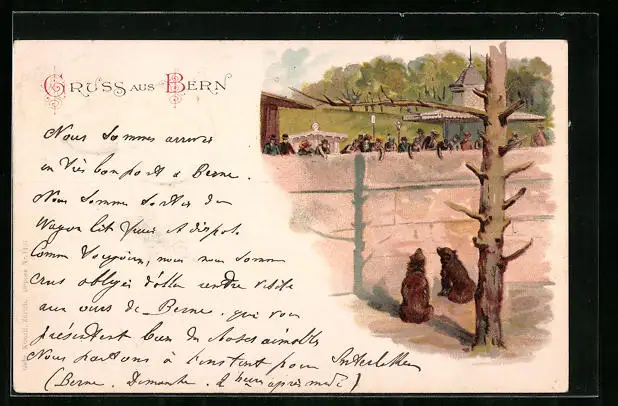 GRUSS AUS BERN
Nous sommes arrivés
en très bon port à Berne.
Nous somme sortis du
Wagon lit frais et dispots
Comme toujours, nous nous somme
crus obligés d'aller rendre visite
aux ours de Berne. qui vous
présentent bien des choses aimables
Nous partons à l'instant pour Interlaken
(Berne. Dimanche. 2 heures après midi)